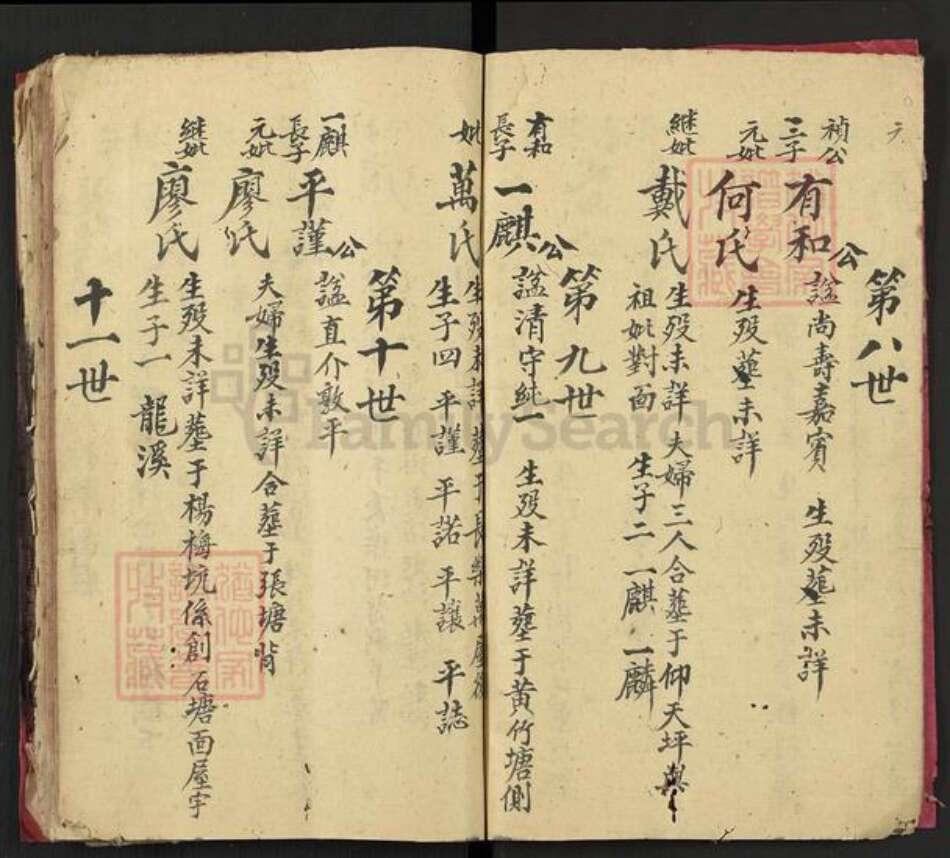 第八世
禎公
三子
有和公 諡尚壽嘉賓 生歿塟未詳
元妣
何氏 生歿塟未詳
継妣
戴氏 生歿未詳 夫婦三人合塟于仰天坪與
祖妣對面 生子二 一麒 一麟
第九世
有和
長子
一麒公 諡清守純一 生歿未詳塟于黄竹塘側
妣 萬氏 生歿未詳塟于長樂萬屋
生子四 平謹 平諾 平讓 平誌
第十世
一麒
長子
平謹公 諡直介敦平
元妣
廖氏 夫婦生歿未詳合塟于張塘背
継妣
廖氏 生歿未詳塟于楊梅坑係創石塘面屋宇
生子一 龍溪
十一世
FamilySearch